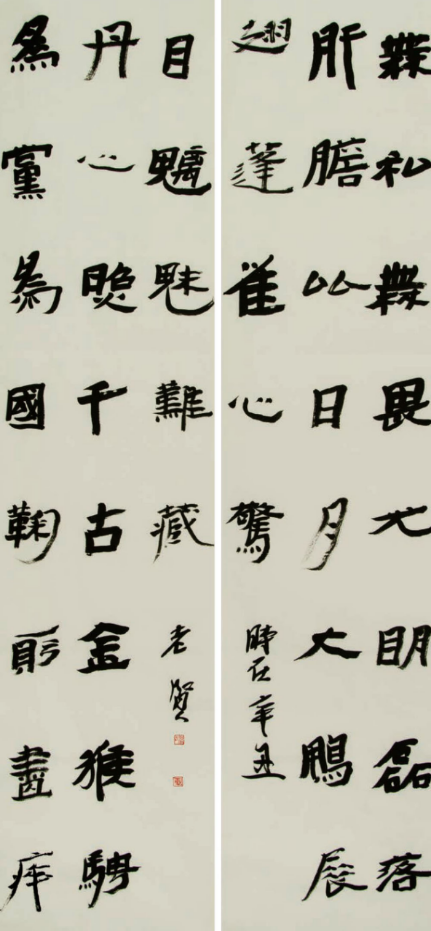 無私無畏光明磊落
肝膽比日月大鵬展
翅蓬雀心驚
時在辛丑
為黨為國鞠躬盡瘁
丹心照千古金猴騁
目魑魅難藏
老賢